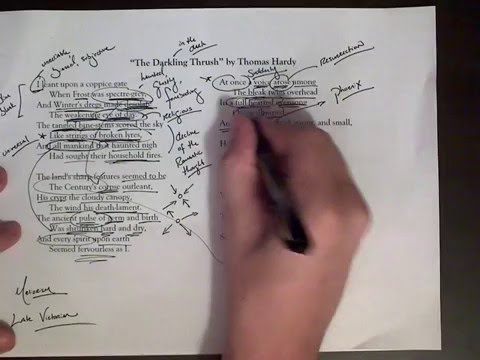 "The Darkling Thrush" by Thomas Hardy
in the dark
Suddenly
Resurrection
phoenix
haunted
ghostly
foreboding
religious
decline
of the
Romantic
thought
universal
I leant upon a coppice gate
When Frost was spectre-grey,
And Winter's dregs made
The weakening eye of day.
The tangled bine-stems scored the sky
Like strings of broken lyres,
And all mankind that haunted nigh
Had sought their household fires.
The land's sharp features seemed to be
The Century's corpse outleant,
His crypt the cloudy canopy,
The wind his death-lament.
The ancient pulse of germ and birth
Was shrunken hard and dry,
And every spirit upon earth
Seemed fervourless as I.
At once a voice arose among
The bleak twigs overhead
In a full-hearted evensong
and small,
Late Victorian